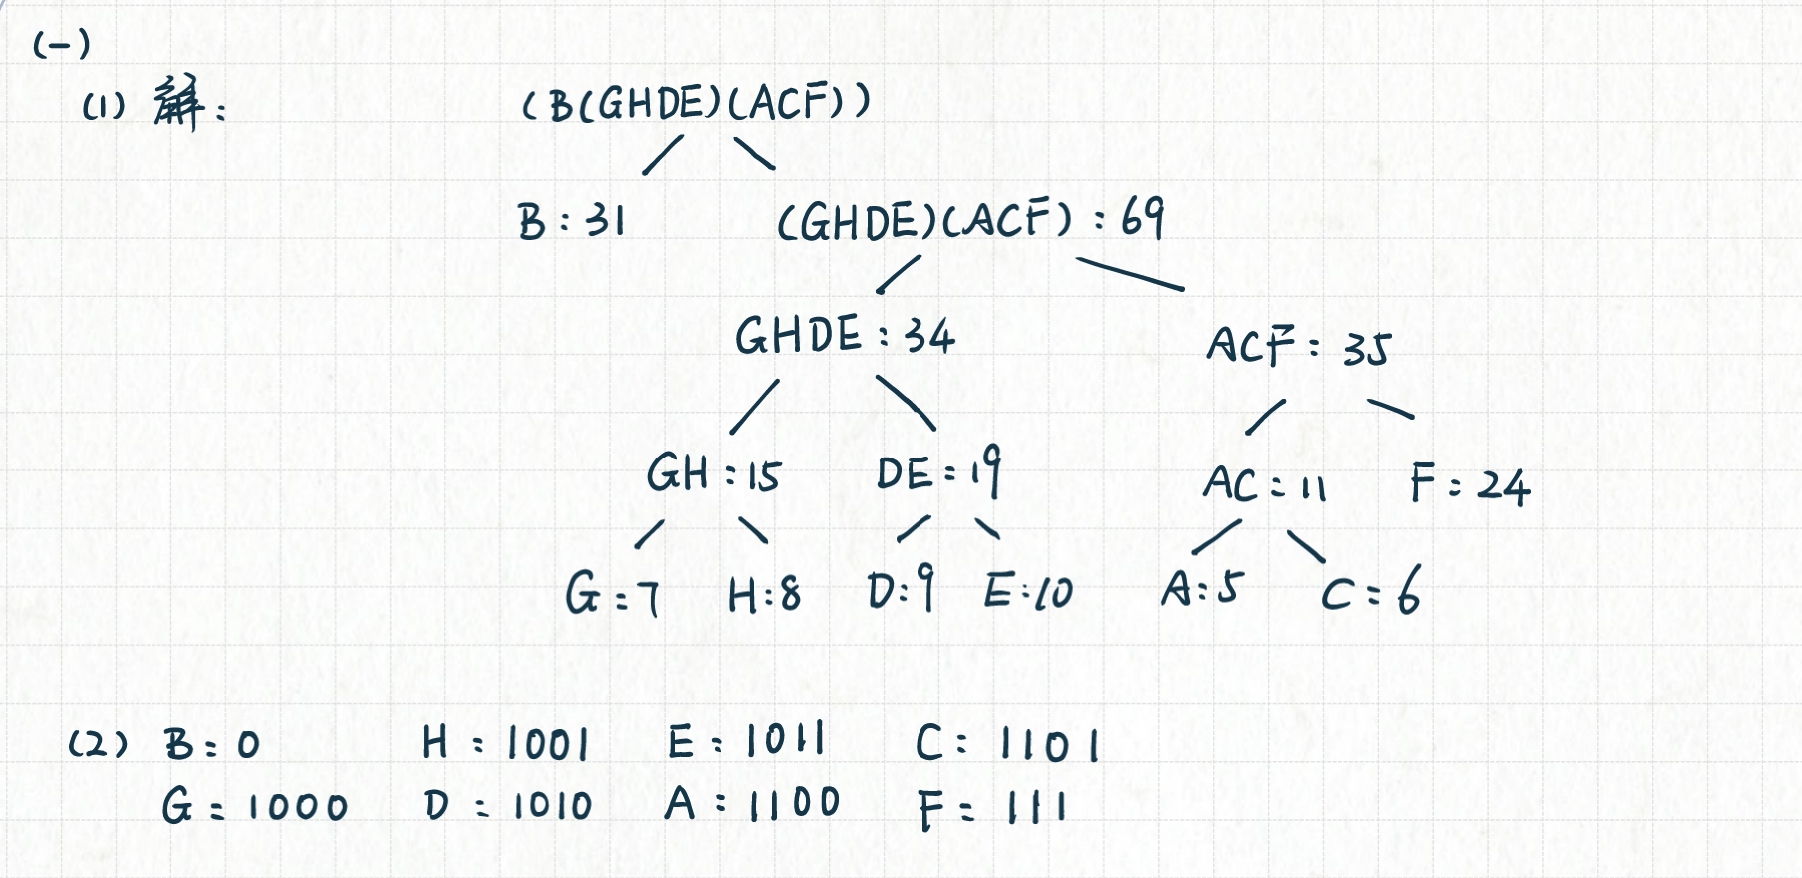 (一)
(1) 解: (B(GHDE)(ACF))
B:31 (GHDE)(ACF):69
GHDE:34 ACF:35
GH:15 DE:19 AC:11 F:24
G:7 H:8 D:9 E:10 A:5 C:6
(2) B:0 H:1001 E:1011 C:1101
G:1000 D:1010 A:1100 F:111